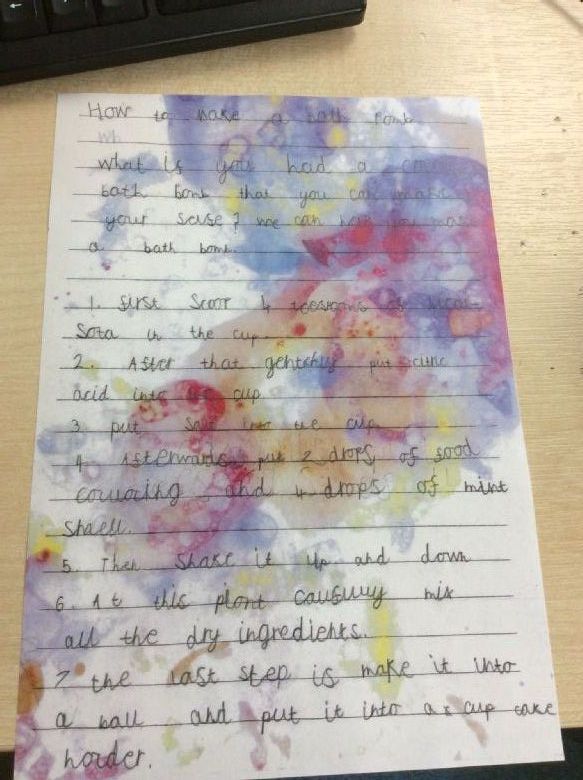 How to make a bath bomb
wh
what is you had a
bath bomb that you can make
your sense? we can help you make
a bath bomb.
1. first scoop 4 teespoons of bicar
Sota in the cup
2. After that gentelly put citric
acid into the cup
3. put salt into the cup
4. Afterwards put 2 drops of food
coulouring and 4 drops of mint
smell.
5. Then shake it up and down
6. At this piont causuuy mix
all the dry ingredients.
7 the last step is make it into
a ball and put it into a cup cake
horder.